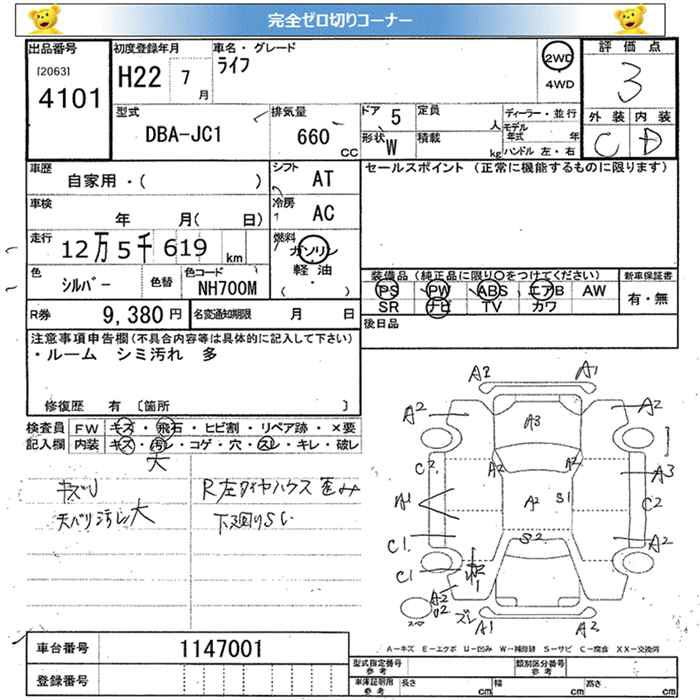 完全ゼロ切りコーナー
出品番号
[2063]
4101
初度登録年月
H22 7月
車名・グレード
ライフ
2WD
4WD
評価点
3
外装 内装
C D
型式
DBA-JC1
排気量
660 CC
ドア 5
形状 W
定員 人
積載 kg
ディーラー・並行
モデル年式 年
ハンドル 左・右
車歴
自家用・( )
車検
年 月( 日)
走行
12万5千619 km
色
シルバー
色替
色コード
NH700M
シフト
AT
冷房
AC
燃料
ガソリン
軽油
( ・ )
セールスポイント (正常に機能するものに限ります)
装備品(純正品に限り○をつけてください)
PS PW ABS エアB AW
SR ナビ TV カワ
新車保証書
有・無
後日品
R券
9,380円
名変通知期限 月 日
注意事項申告欄(不具合内容等は具体的に記入して下さい)
・ルーム シミ汚れ 多
修復歴 有 〔箇所 〕
検査員記入欄
FW キズ・飛石・ヒビ割・リペア跡・×要
内装 キズ・汚レ・コゲ・穴・スレ・キレ・破レ
大
キズU
天バリ汚レ大
R左タイヤハウス歪み
下廻りSC
A2 A1
A2 A2
A3
C2 A2 A2 A3
A1 A2 S1 C2
C1 S2 A2
C1
A2
U2
ズレ
A1 A2
A-キズ E-エクボ U-凹み W-補修跡 S-サビ C-腐食 XX-交換済
車台番号
1147001
登録番号
型式指定番号 参考
類別区分番号 参考
車庫証明用 参考
長さ cm 幅 cm 高さ cm